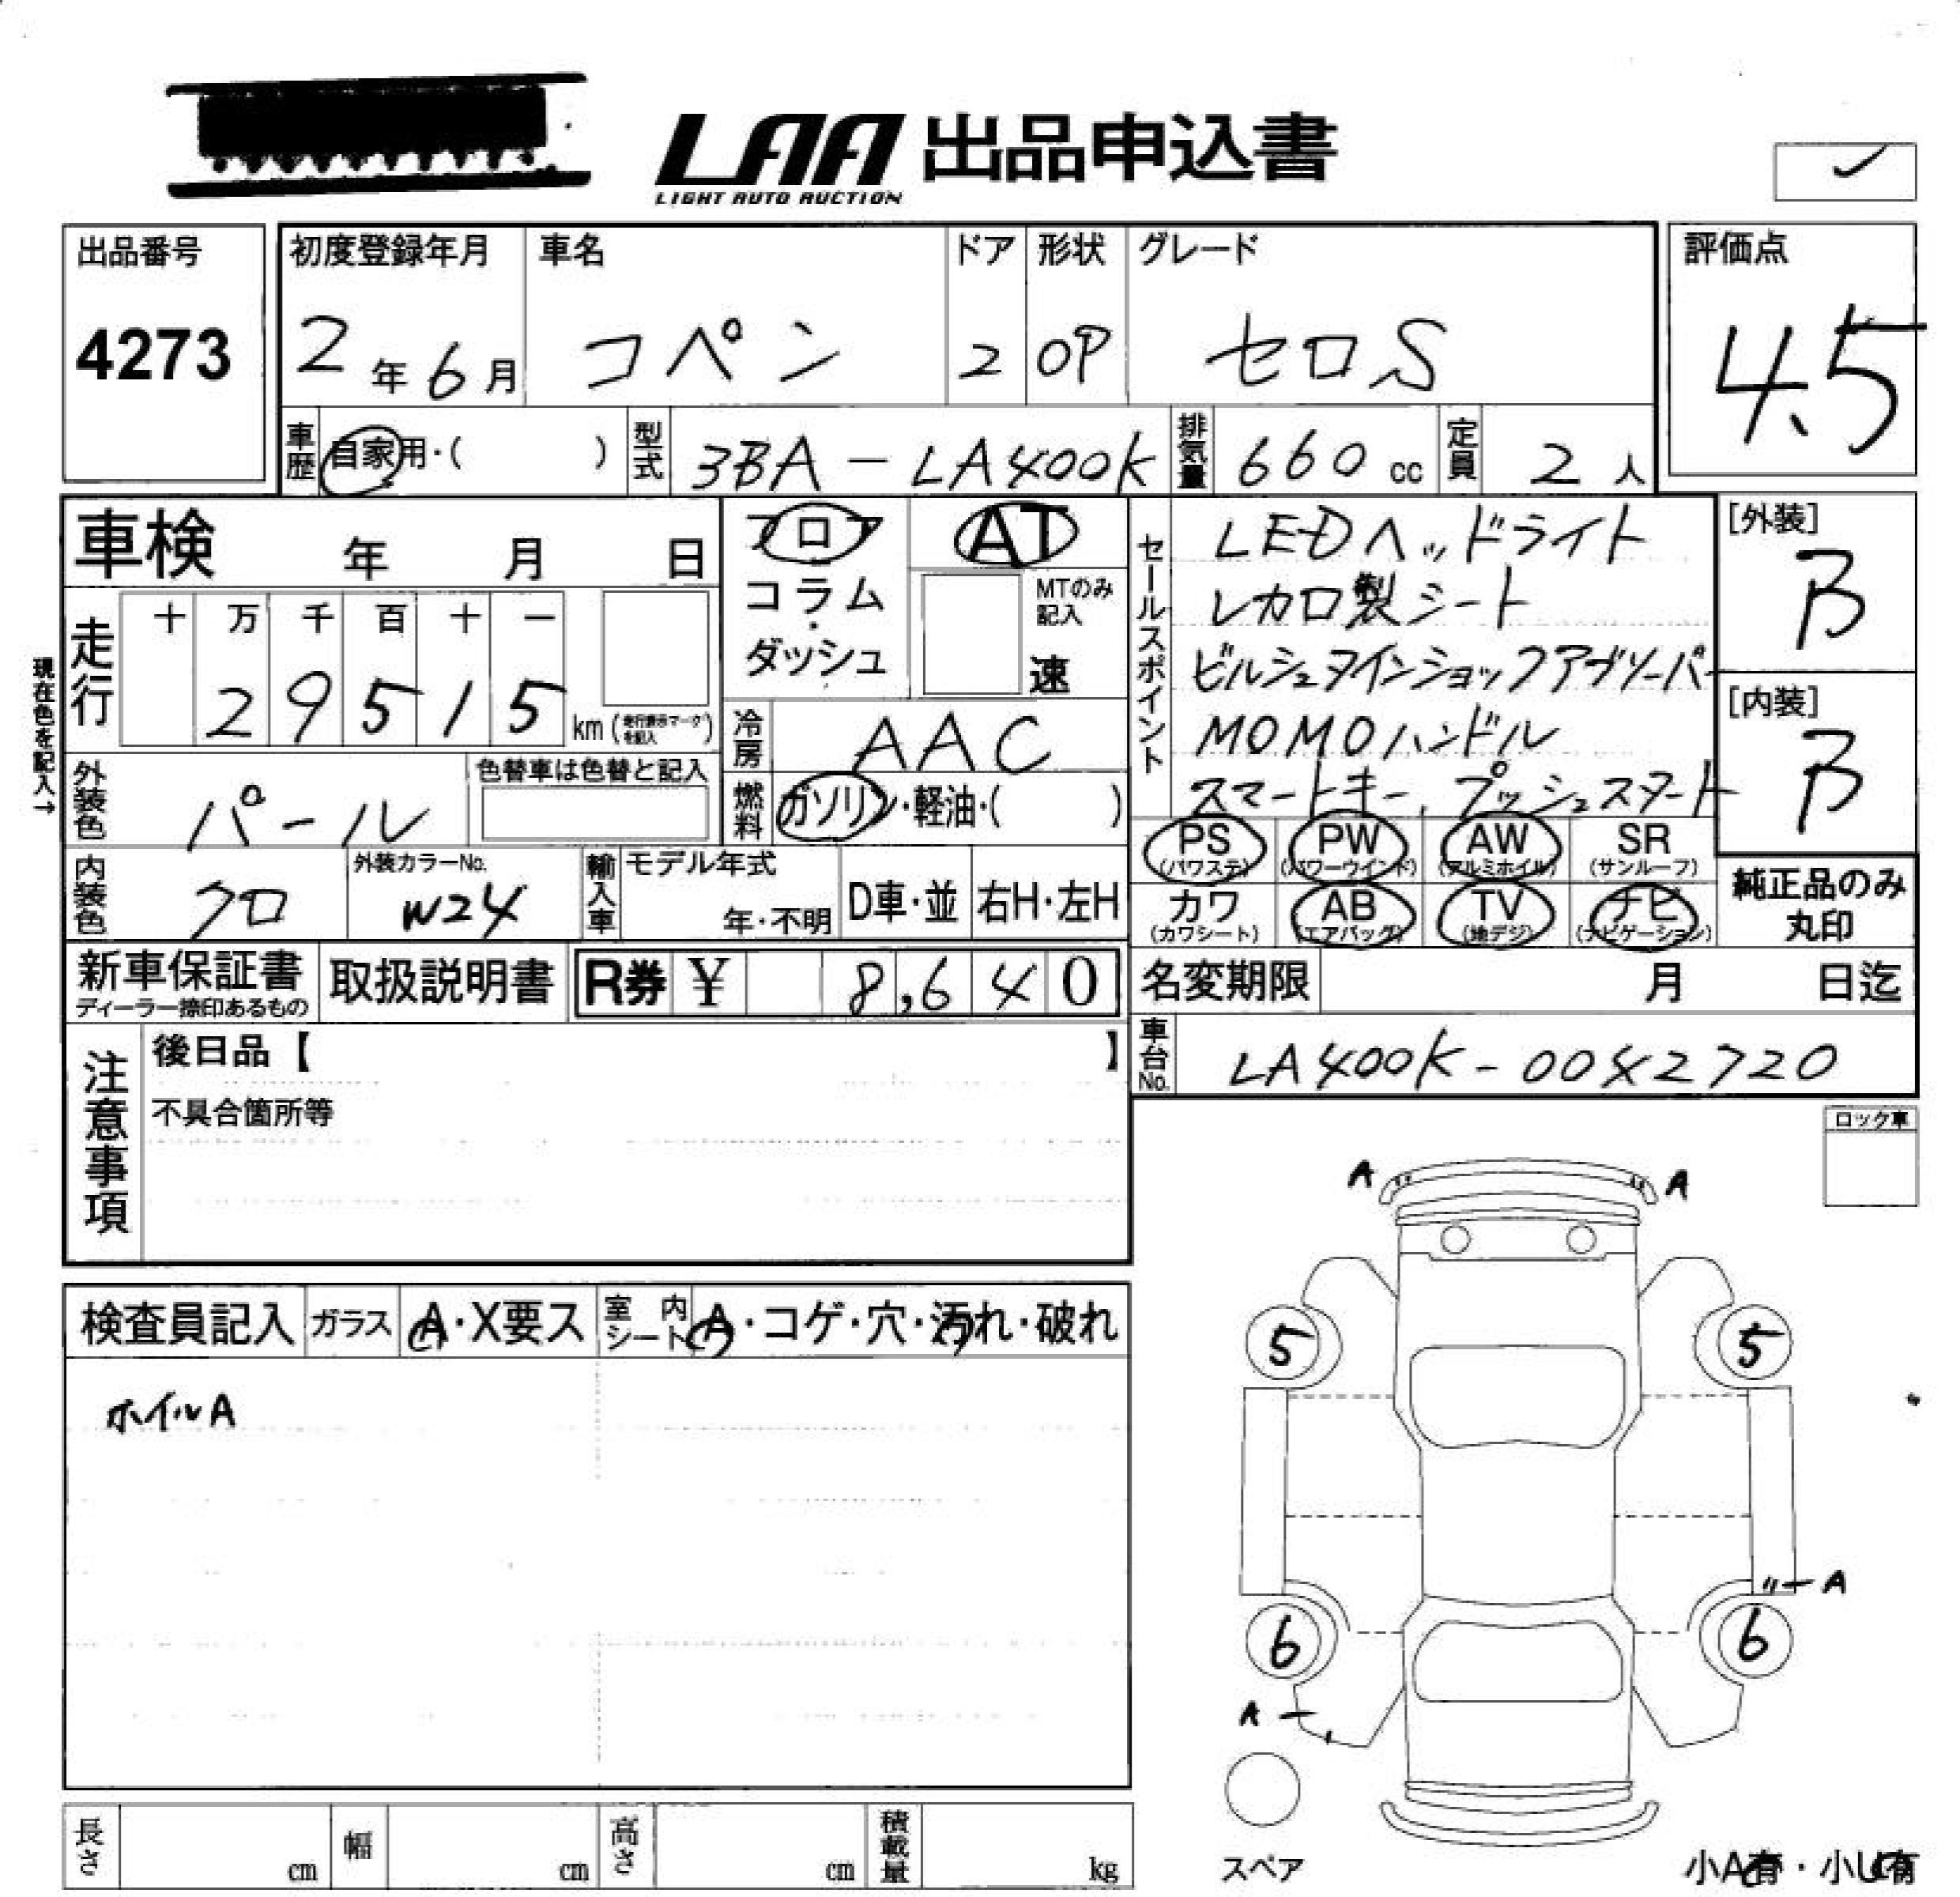 LAA 出品申込書
LIGHT AUTO AUCTION
出品番号
4273
初度登録年月
2年6月
車名
コペン
ドア
2
形状
OP
グレード
セロS
評価点
4.5
車歴 自家用・( )
型式 3BA-LA400K
排気量 660 cc
定員 2人
車検 年 月 日
フロア
コラム・ダッシュ
AT
MTのみ記入
速
セールスポイント
LEDヘッドライト
レカロ製シート
ビルシュタインショックアブソーバー
MOMOハンドル
スマートキー, プッシュスタート
[外装]
B
[内装]
B
現在色を記入→
走行
十 万 千 百 十 一
2 9 5 1 5
km (走行表示マークを記入)
冷房 AAC
燃料 ガソリン・軽油・( )
外装色 パール
色替車は色替と記入
内装色 クロ
外装カラーNo.
W24
輸入車
モデル年式
年・不明
D車・並
右H・左H
PS
(パワステ)
PW
(パワーウインド)
AW
(アルミホイル)
SR
(サンルーフ)
カワ
(カワシート)
AB
(エアバッグ)
TV
(地デジ)
ナビ
(ナビゲーション)
純正品のみ
丸印
新車保証書
ディーラー捺印あるもの
取扱説明書
R券 ¥ 8,640
名変期限 月 日迄
車台No. LA400K-0042720
注意事項
後日品【 】
不具合箇所等
ロック車
A A
5 5
A
6 6
A
スペア
小A有・小U有
検査員記入
ガラス A・X要ス
室内シート A・コゲ・穴・汚れ・破れ
ホイルA
長さ cm
幅 cm
高さ cm
積載量 kg